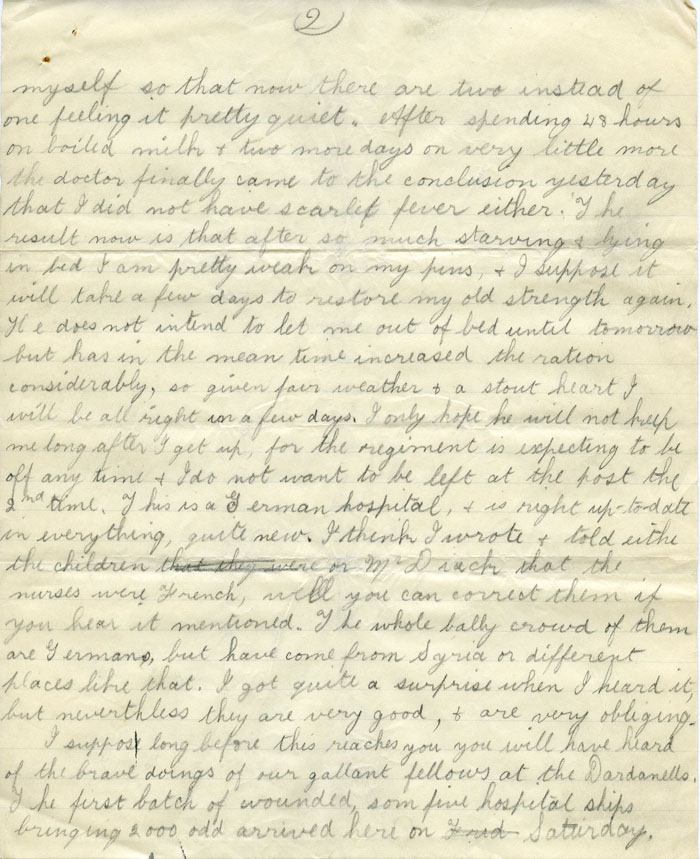 2
myself so that now there are two instead of
one feeling it pretty quiet. After spending 48 hours
on boiled milk & two more days on very little more
the doctor finally came to the conclusion yesterday
that I did not have scarlet fever either. The
result now is that after so much starving & lying
in bed I am pretty weak on my pins, & I suppose it
will take a few days to restore my old strength again.
He does not intend to let me out of bed until tomorrow
but has in the mean time increased the ration
considerably, so given fair weather & a stout heart I
will be all right in a few days. I only hope he will not keep
me long after I get up, for the regiment is expecting to be
off any time & I do not want to be left at the post the
2nd time. This is a German hospital, & is right up-to-date
in everything, quite new. I think I wrote & told eithe
the children that they were or Mr Diack that the
nurses were French, well you can correct them if
you hear it mentioned. The whole bally crowd of them
are Germans, but have come from Syria or different
places like that. I got quite a surprise when I heard it
but neverthless they are very good, & are very obliging.
I suppose long before this reaches you you will have heard
of the brave doings of our gallant fellows at the Dardanells.
The first batch of wounded, som five hospital ships
bringing 2000 odd arrived here on Frid Saturday.